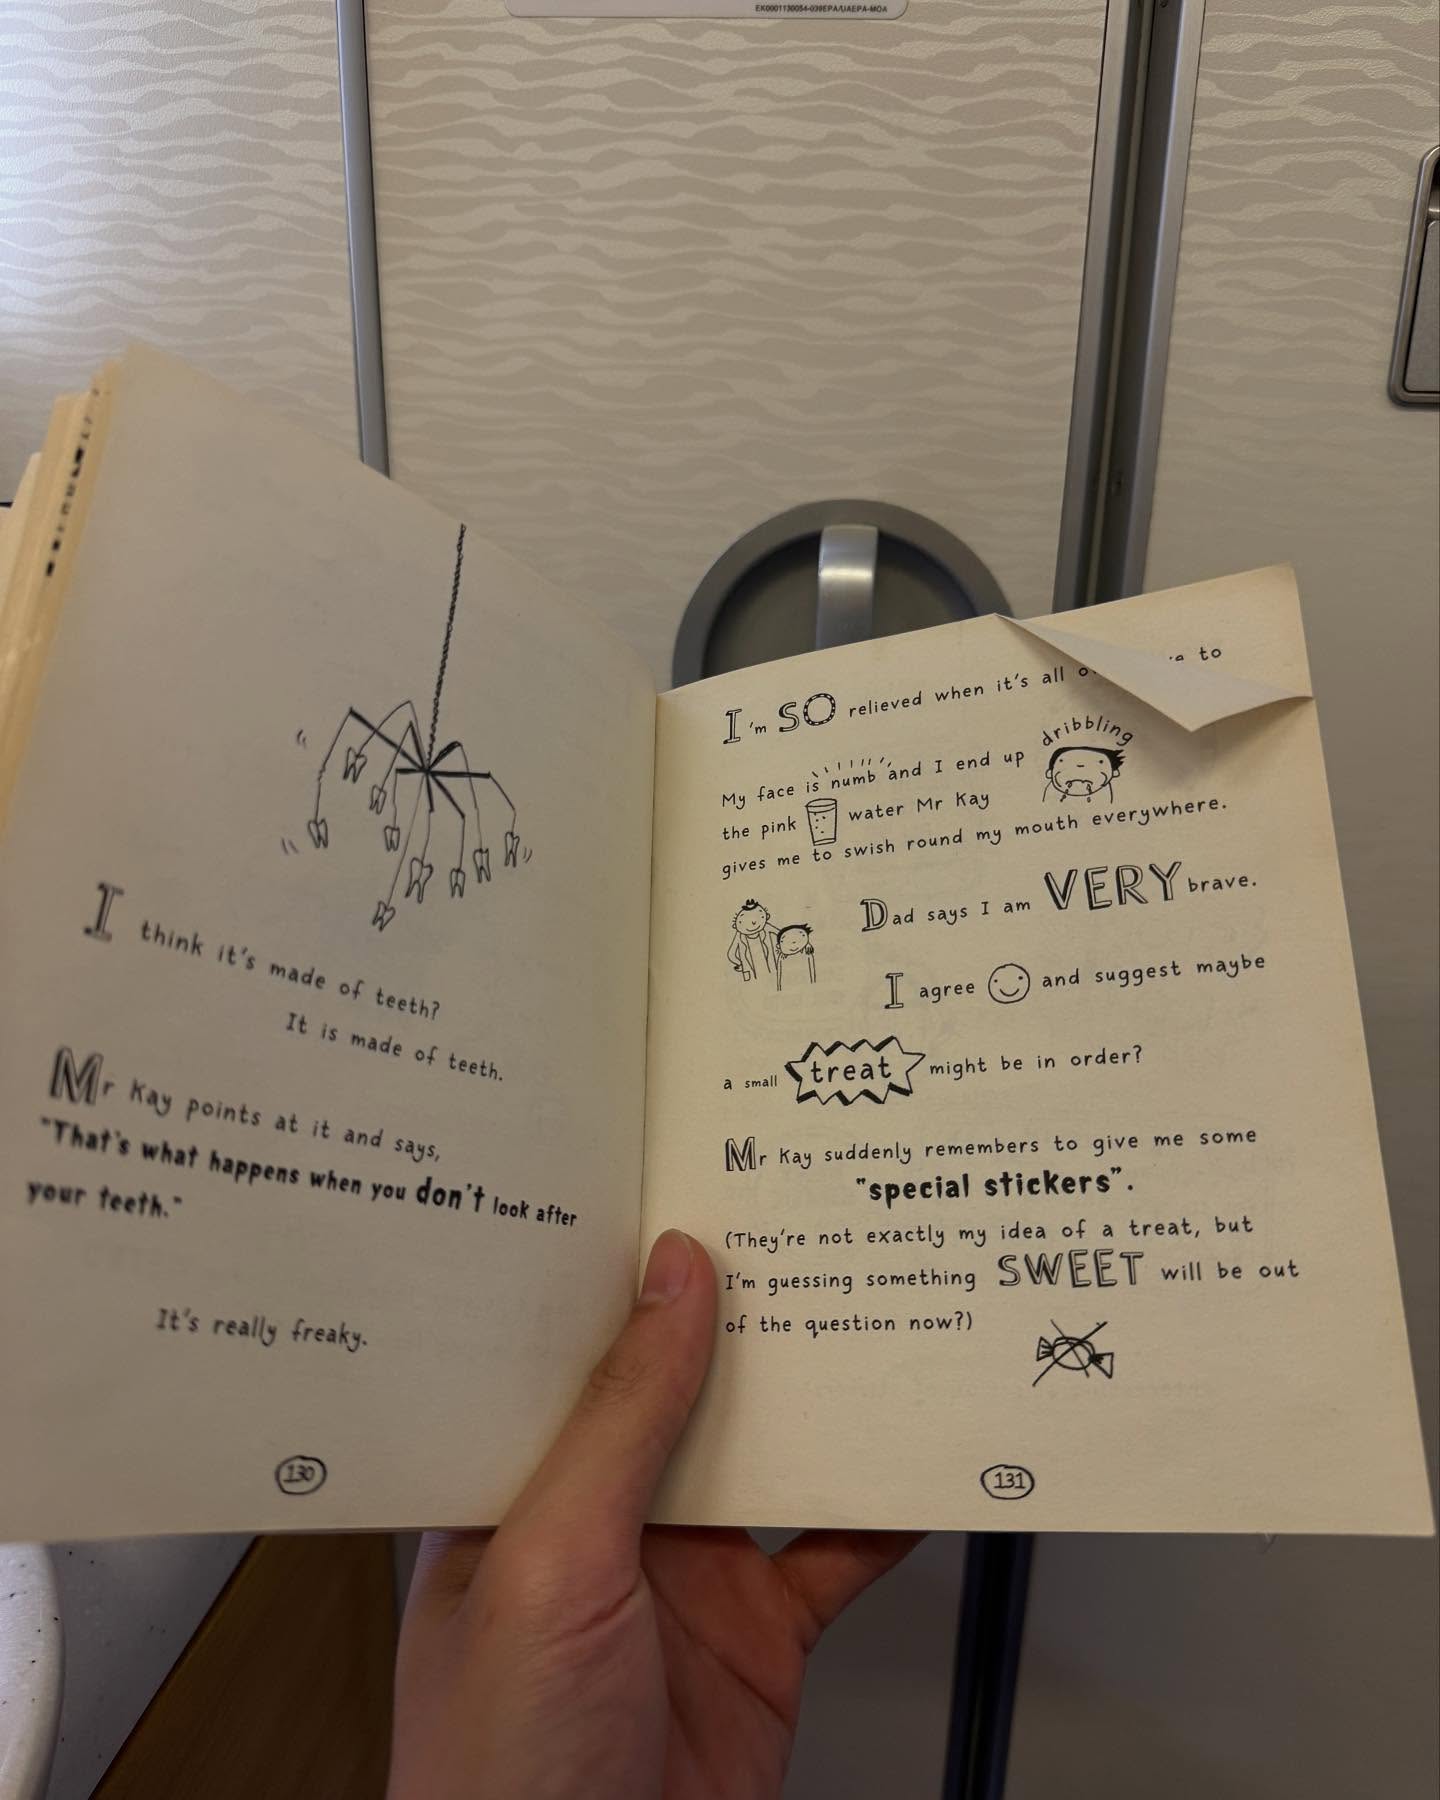 EK0001130054-039EPA/UAEPA-MOA
I think it's made of teeth?
It is made of teeth.
Mr Kay points at it and says,
"That's what happens when you don't look after
your teeth."
It's really freaky.
130
I'm SO relieved when it's all to
dribbling
My face is numb and I end up
the pink water Mr Kay
gives me to swish round my mouth everywhere.
Dad says I am VERY brave.
I agree and suggest maybe
a small treat might be in order?
Mr Kay suddenly remembers to give me some
"special stickers".
(They're not exactly my idea of a treat, but
I'm guessing something SWEET will be out
of the question now?)
131